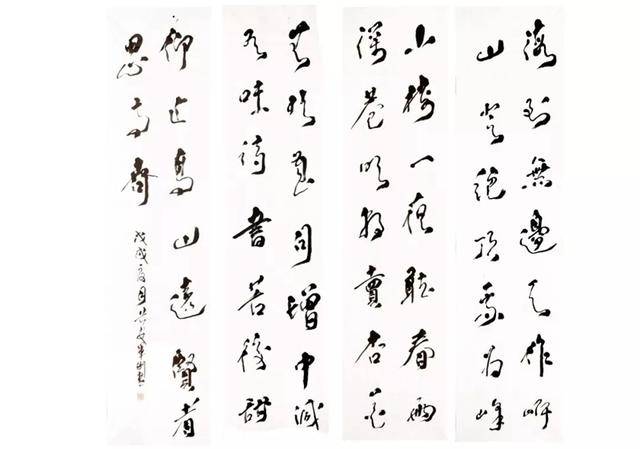 海到無邊天作岸
山登絕頂我為峰
小樓一夜聽春雨
深巷明朝賣杏花
句增中減
有味詩書苦後甜
仰止高山遠賢者
思齊
戊戌夏月